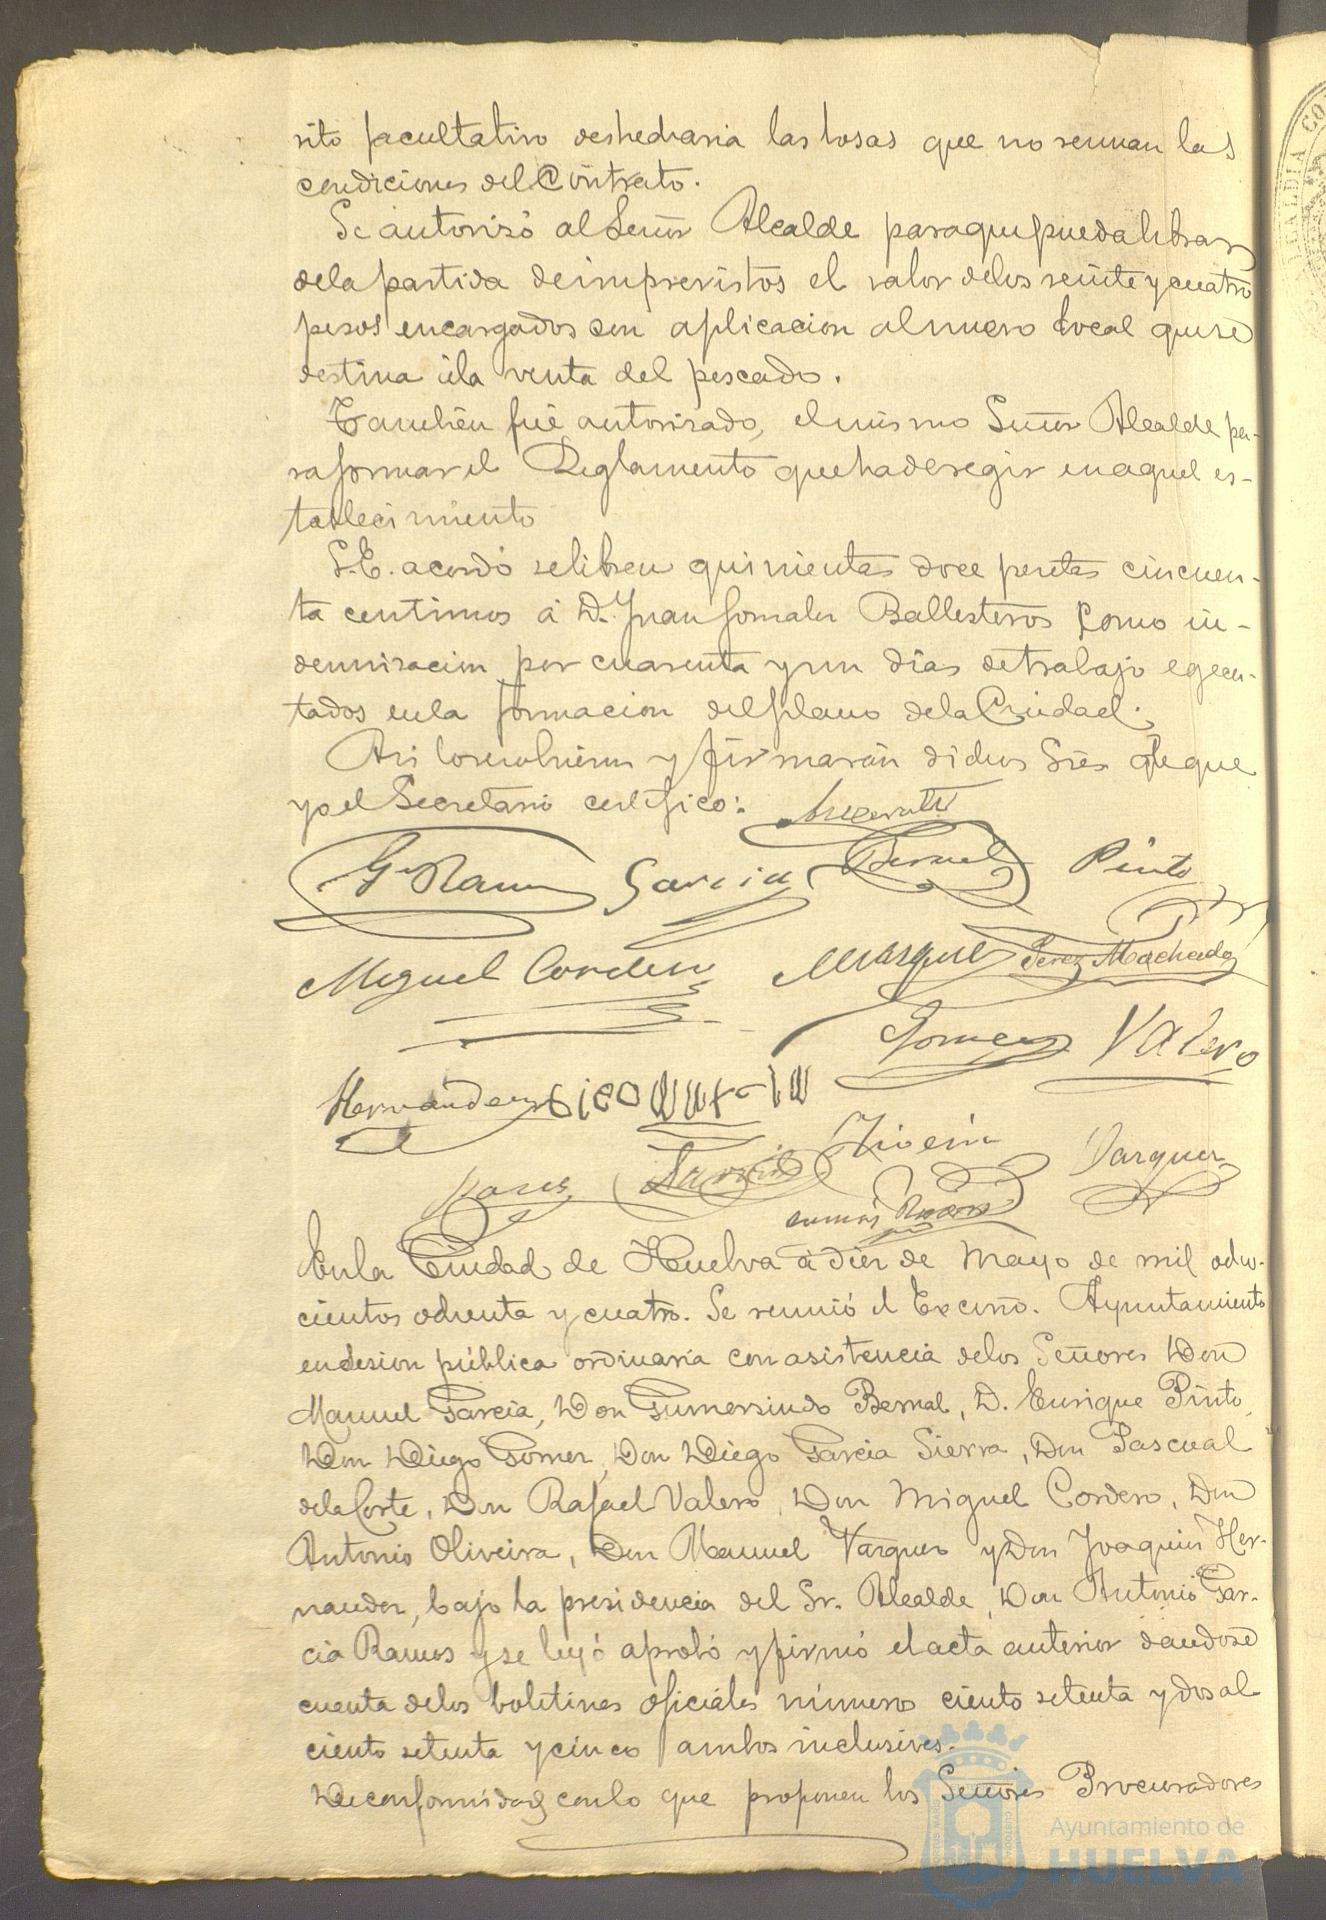 sito facultativo deshecharia las losas que no reunan las
condiciones del Contrato.
Se autorizó al Señor Alcalde para que pueda librar
de la partida de imprevistos el valor de los veinte y cuatro
pesos encargados con aplicacion al nuevo local que se
destina á la venta del pescado.
Tambien fué autorizado, el mismo Señor Alcalde pa-
ra formar el Reglamento que ha de regir en aquel es-
tablecimiento
S.E. acordó se libren quinientas doce pesetas cincuen-
ta centimos á D. Juan Gonzalez Ballesteros como in-
demnizacion por cuarenta y un dias de trabajo egecu-
tados en la formacion del plano de la Ciudad.
Asi lo resolvieron y firmarán dichos Sres de que
yo el Secretario certifico:
G. Ramos Garcia Bernal Pinto
Miguel Cordero Marquez Perez Machado
Gomez Valero
Hernandez Diego Garcia
Oliveira Vazquez
En la Ciudad de Huelva á diez de Mayo de mil ocho-
cientos ochenta y cuatro. Se reunió el Excmo. Ayuntamiento
en sesion pública ordinaria con asistencia de los Señores Don
Manuel Garcia, Don Gumersindo Bernal, D. Enrique Pinto,
Don Diego Gomez, Don Diego Garcia Sierra, Don Pascual
de la Corte, Don Rafael Valero, Don Miguel Cordero, Don
Antonio Oliveira, Don Manuel Vazquez y Don Joaquin Her-
nandez, bajo la presidencia del Sr. Alcalde, Don Antonio Gar-
cia Ramos y se leyó aprobó y firmó el acta anterior dandose
cuenta de los boletines oficiales números ciento setenta y dos al
ciento setenta y cinco ambos inclusives.
De conformidad con lo que proponen los Señores Procuradores
Ayuntamiento de
HUELVA